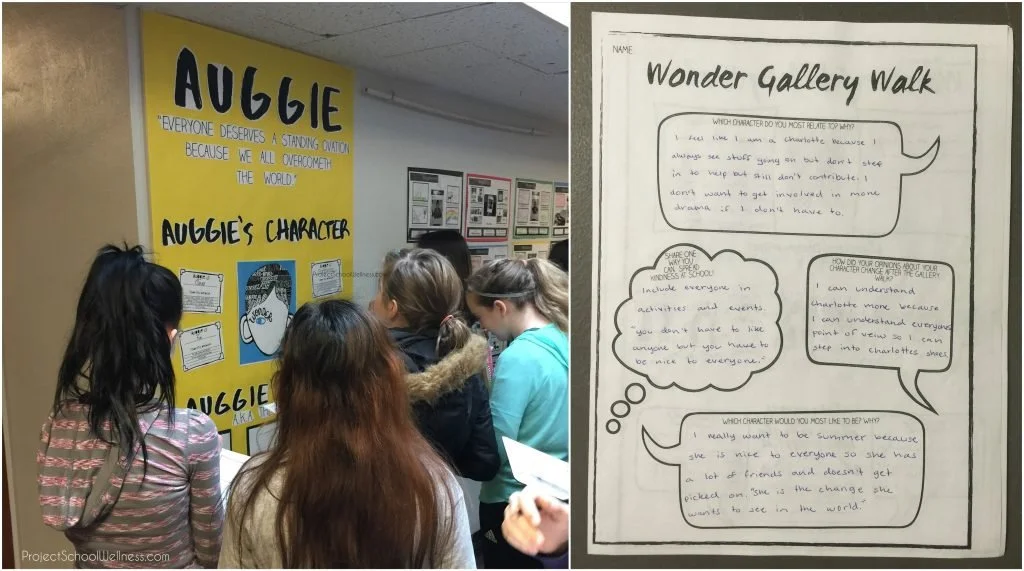 AUGGIE
"EVERYONE DESERVES A STANDING OVATION
BECAUSE WE ALL OVERCOMETH
THE WORLD."
AUGGIE'S CHARACTER
ProjectSchoolWellness
wonder
AUGGIE
A.K.A
ProjectSchoolWellness.com
NAME
Wonder Gallery Walk
WHICH CHARACTER DO YOU MOST RELATE TO? WHY?
I feel like I am a charlotte because I
always see stuff going on but don't step
in to help but still don't contribute. I
don't want to get involved in more
drama if I don't have to.
SHARE ONE
WAY YOU
CAN SPREAD
KINDNESS AT SCHOOL!
Include everyone in
activities and events.
"you don't have to like
anyone but you have to
be nice to everyone."
HOW DID YOUR OPINIONS ABOUT YOUR
CHARACTER CHANGE AFTER THE GALLERY
WALK?
I can understand
Charlotte more because
I can understand everyones
point of veiw so I can
step into charlottes shoes.
WHICH CHARACTER WOULD YOU MOST LIKE TO BE? WHY?
I really want to be Summer because
she is nice to everyone so she has
a lot of friends and doesn't get
picked on. "She is the change she
wants to see in the world."